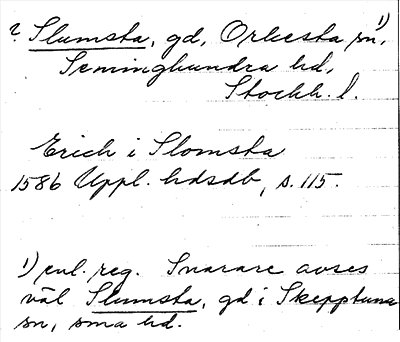 ? Slumsta, gd, Orkesta sn, 1)
Seminghundra hd,
Stockh. l.
Erich i Slomsta
1586 Uppl. hdsdb, s. 115.
1) enl. reg. Snarare avses
väl Slumsta, gd i Skepptuna
sn, sma hd.